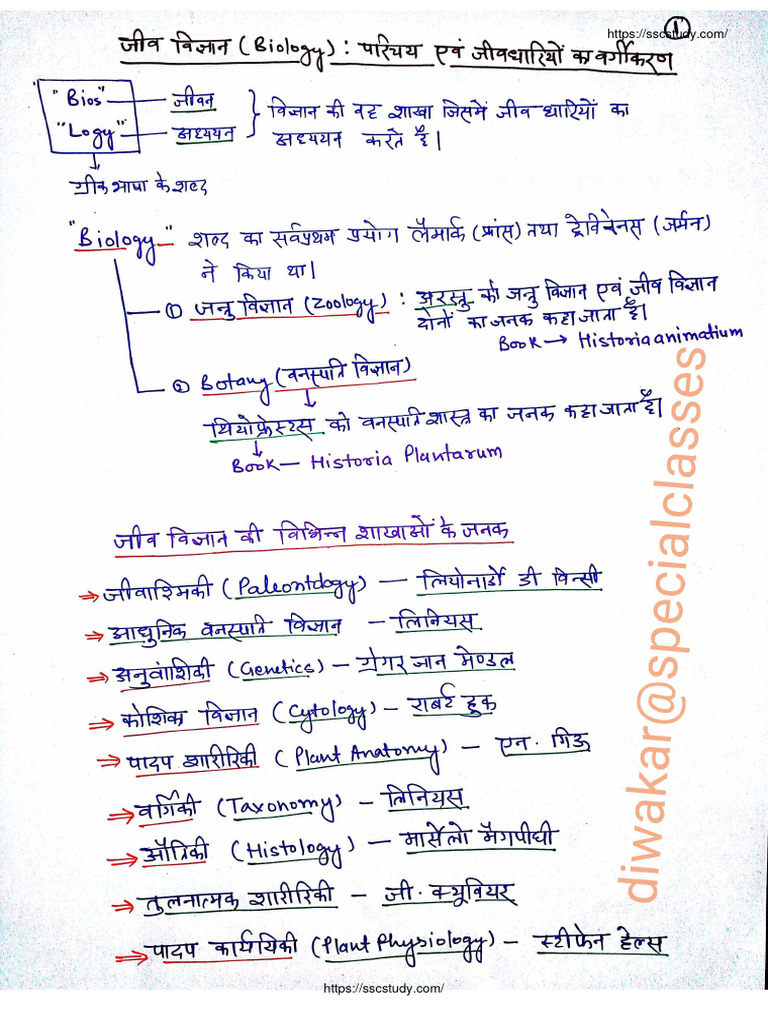 https://sscstudy.com/
1
जीव विज्ञान (Biology) : परिचय एवं जीवधारियों का वर्गीकरण
"Bios" — जीवन } विज्ञान की वह शाखा जिसमें जीव धारियों का
"Logy" — अध्ययन } अध्ययन करते हैं।
↓
ग्रीक भाषा के शब्द
"Biology" शब्द का सर्वप्रथम प्रयोग लैमार्क (फ्रांस) तथा ट्रेविरेनस (जर्मन)
ने किया था।
① जन्तु विज्ञान (Zoology) : अरस्तु को जन्तु विज्ञान एवं जीव विज्ञान
दोनों का जनक कहा जाता है।
Book → Historia animatium
② Botany (वनस्पति विज्ञान)
↓
थियोफ्रेस्टस को वनस्पति शास्त्र का जनक कहा जाता है।
↓
Book — Historia Plantarum
जीव विज्ञान की विभिन्न शाखाओं के जनक
⇒ जीवाश्मिकी (Paleontology) — लियोनार्डो डी विन्सी
⇒ आधुनिक वनस्पति विज्ञान — लिनियस
⇒ अनुवांशिकी (Genetics) — ग्रेगर जान मेण्डल
⇒ कोशिका विज्ञान (Cytology) — राबर्ट हुक
⇒ पादप शारीरिकी (Plant Anatomy) — एन. गिऊ
⇒ वर्गिकी (Taxonomy) — लिनियस
⇒ औत्रिकी (Histology) — मार्सेलो मैगपीघी
⇒ तुलनात्मक शारीरिकी — जी. क्यूवियर
⇒ पादप कार्यिकी (Plant Physiology) — स्टीफेन हेल्स
diwakar@specialclasses
https://sscstudy.com/